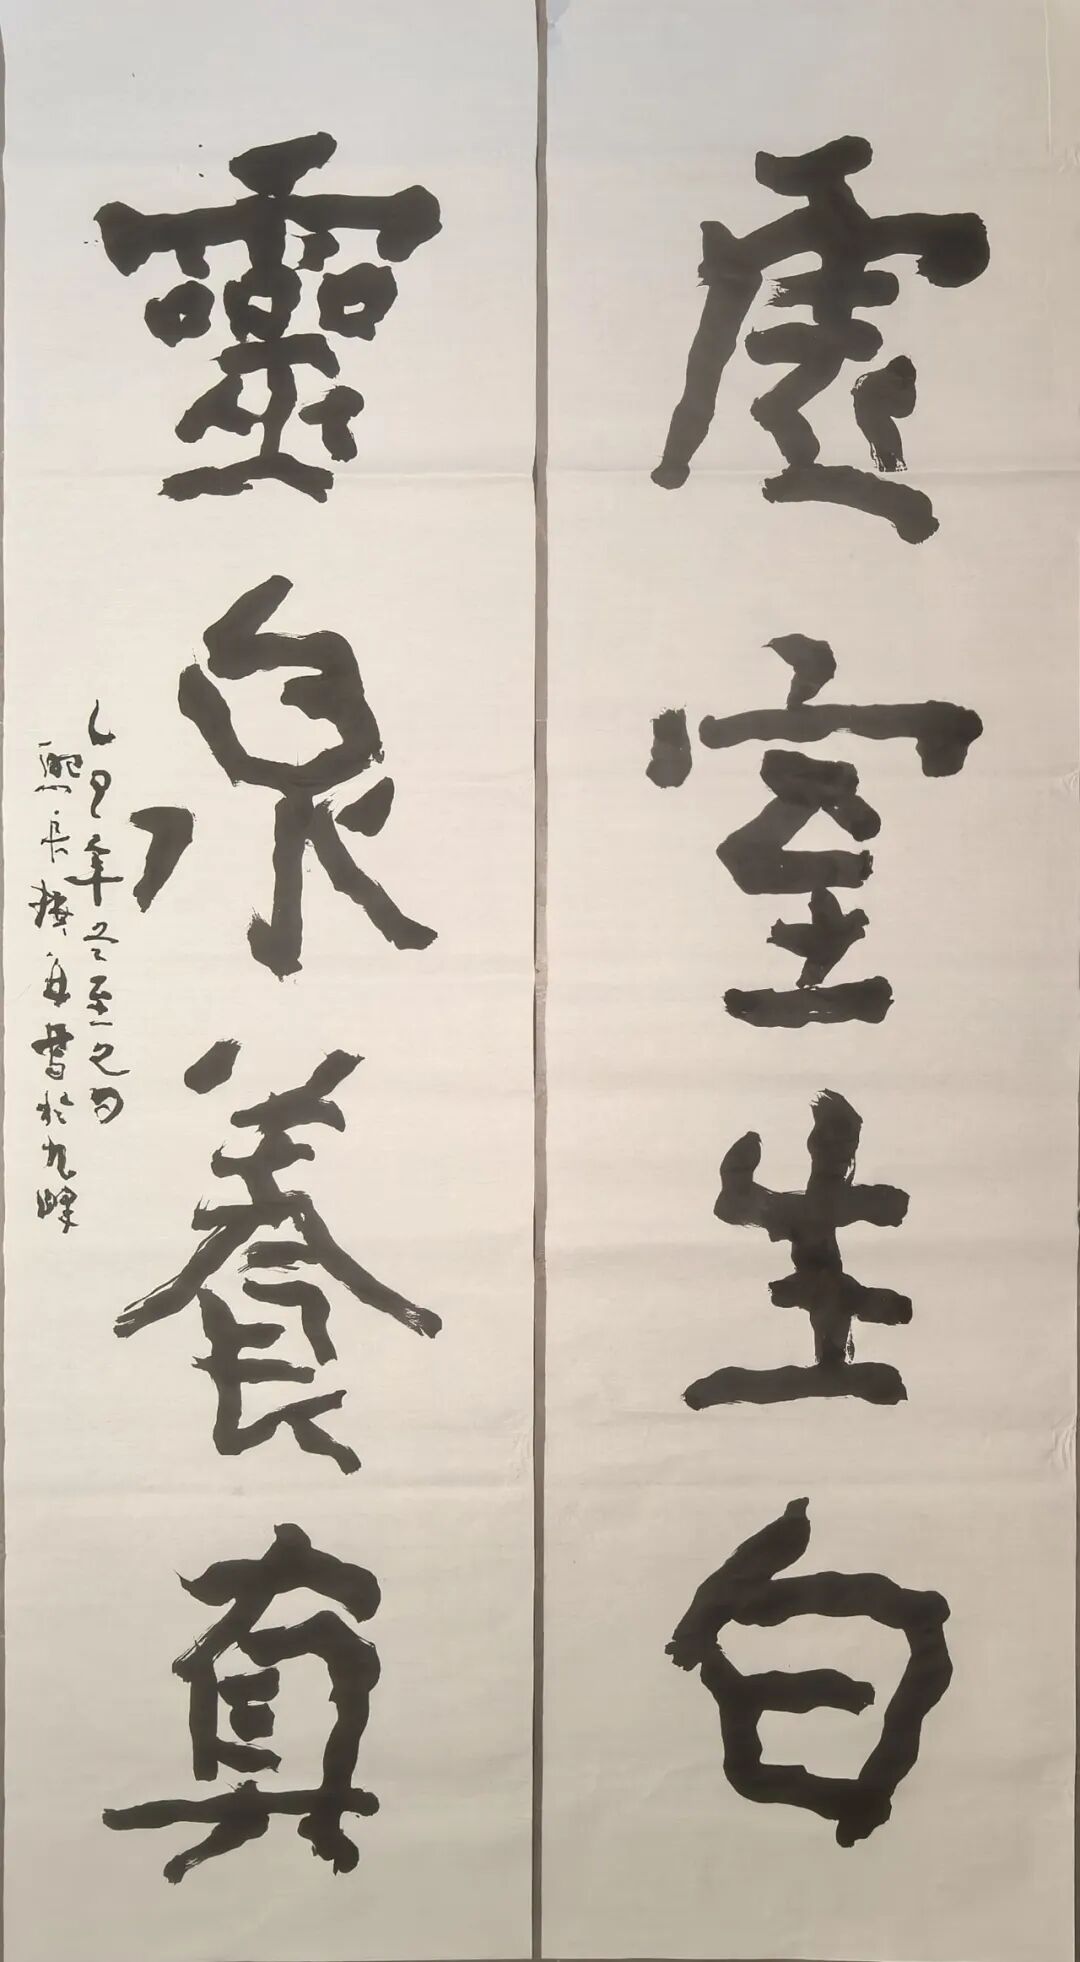 虛室生白
靈泉養真
乙巳年冬至之日
熙長 書於九